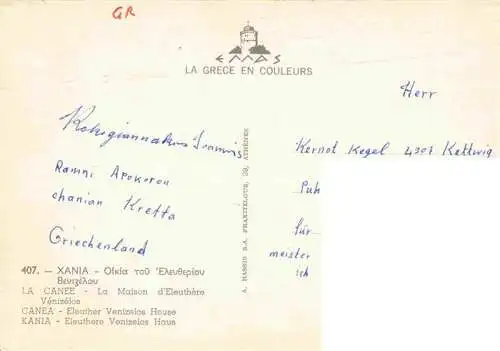 GR
EMAS
LA GRECE EN COULEURS
Herr
Kernot Kegel 4307 Kettwig
Ramni Apokorou
chanian Kretta
Griechenland
Puh
für
meister
ich
A. HASSID S.A. PRAXITELOUS, 39, ATHÈNES
407. — ΧΑΝΙΑ - Οἰκία τοῦ Ἐλευθερίου
Βενιζέλου
LA CANEE - La Maison d'Eleuthère
Vénizélos
CANEA - Eleuther Venizelos House
KANIA - Eleuthere Venizelos Haus